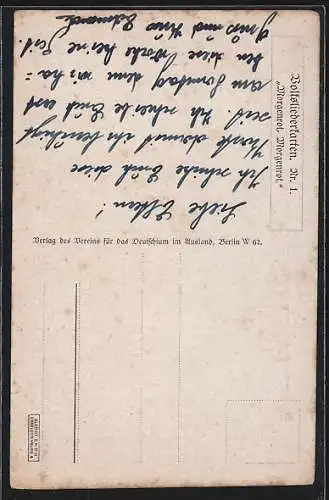 Volksliederkarten. Nr. 1.
„Morgenrot, Morgenrot.“
Liebe Eltern!
Ich schicke Euch diese
Karte damit ihr beruhigt
seid. Ich schreibe Euch erst
am Sonntag denn wir ha=
ben diese Woche keine Zeit.
Gruß und Kuss
Verlag des Vereins für das Deutschtum im Ausland, Berlin W 62.